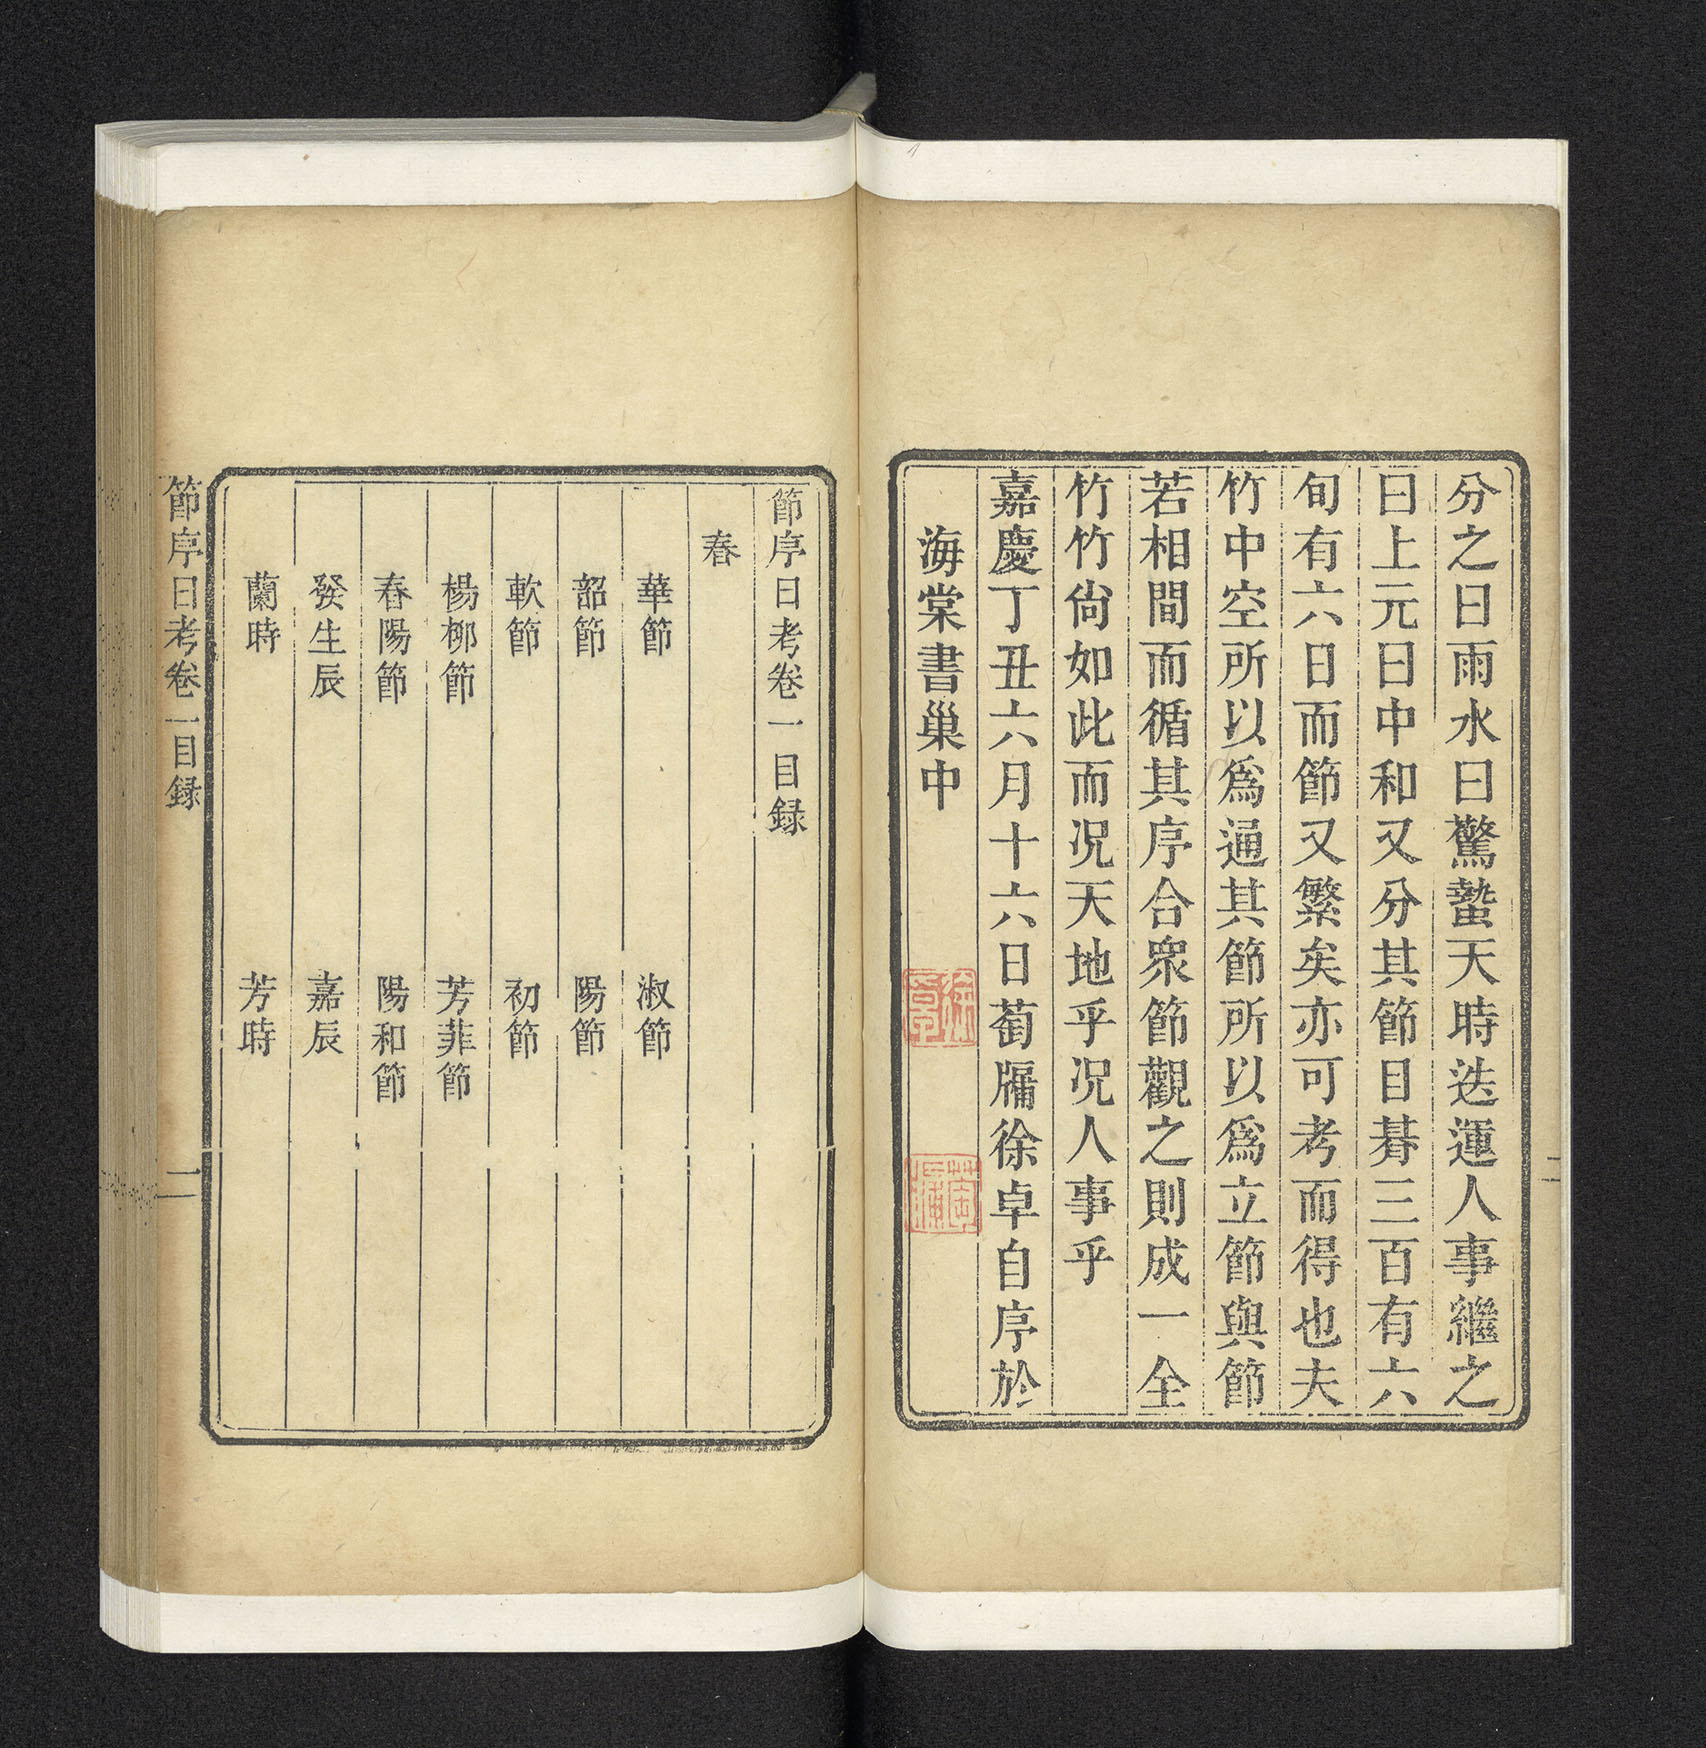 分之曰雨水曰驚蟄天時迭運人事繼之
曰上元曰中和又分其節目朞三百有六
旬有六日而節又繁矣亦可考而得也夫
竹中空所以爲通其節所以爲立節與節
若相間而循其序合衆節觀之則成一全
竹竹尙如此而况天地乎况人事乎
嘉慶丁丑六月十六日萄牖徐卓自序於
海棠書巢中
節序日考卷一目録
春
華節 淑節
韶節 陽節
軟節 初節
楊栁節 芳菲節
春陽節 陽和節
發生辰 嘉辰
蘭時 芳時
節序日考卷一目録 一